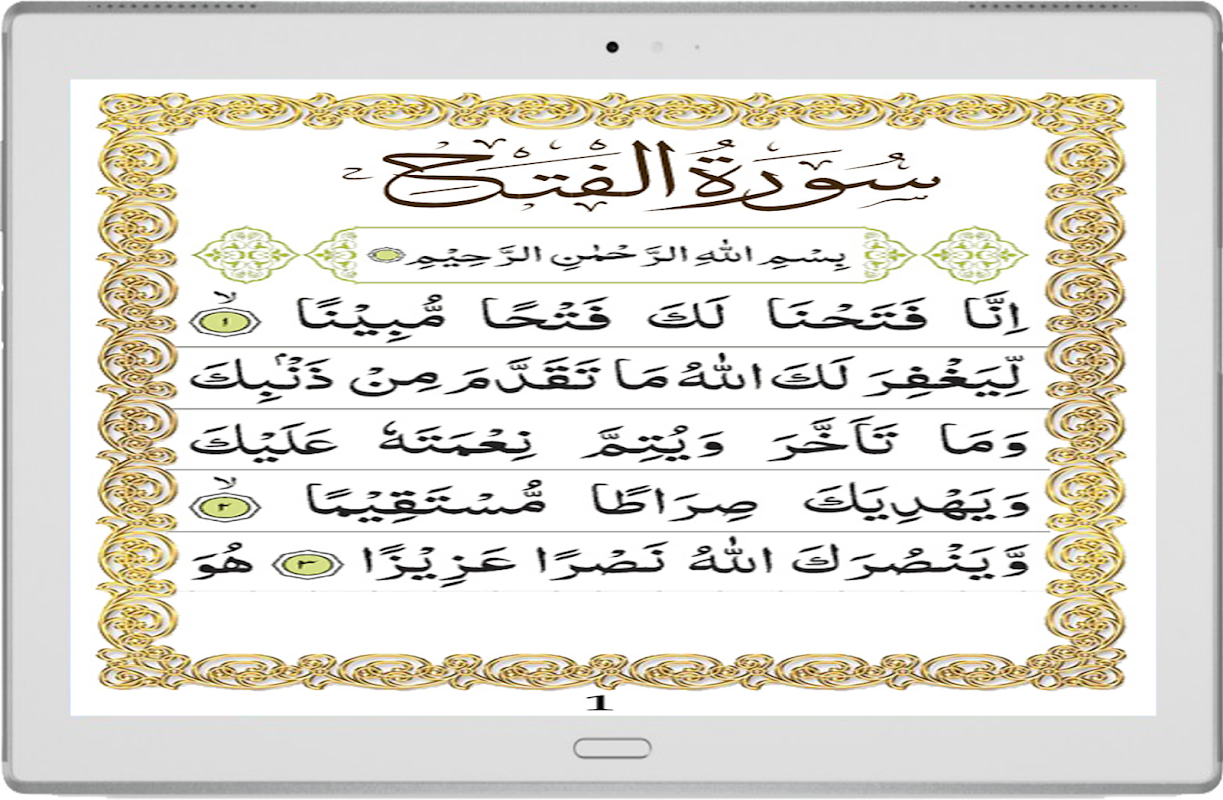 سُورَةُ الْفَتْحِ
بِسْمِ اللهِ الرَّحْمٰنِ الرَّحِيْمِ
اِنَّا فَتَحْنَا لَكَ فَتْحًا مُّبِيْنًا ۙ ١
لِّيَغْفِرَ لَكَ اللهُ مَا تَقَدَّمَ مِنْ ذَنْۢبِكَ
وَمَا تَاَخَّرَ وَيُتِمَّ نِعْمَتَهٗ عَلَيْكَ
وَيَهْدِيَكَ صِرَاطًا مُّسْتَقِيْمًا ۙ ٢
وَّيَنْصُرَكَ اللهُ نَصْرًا عَزِيْزًا ٣ هُوَ
1